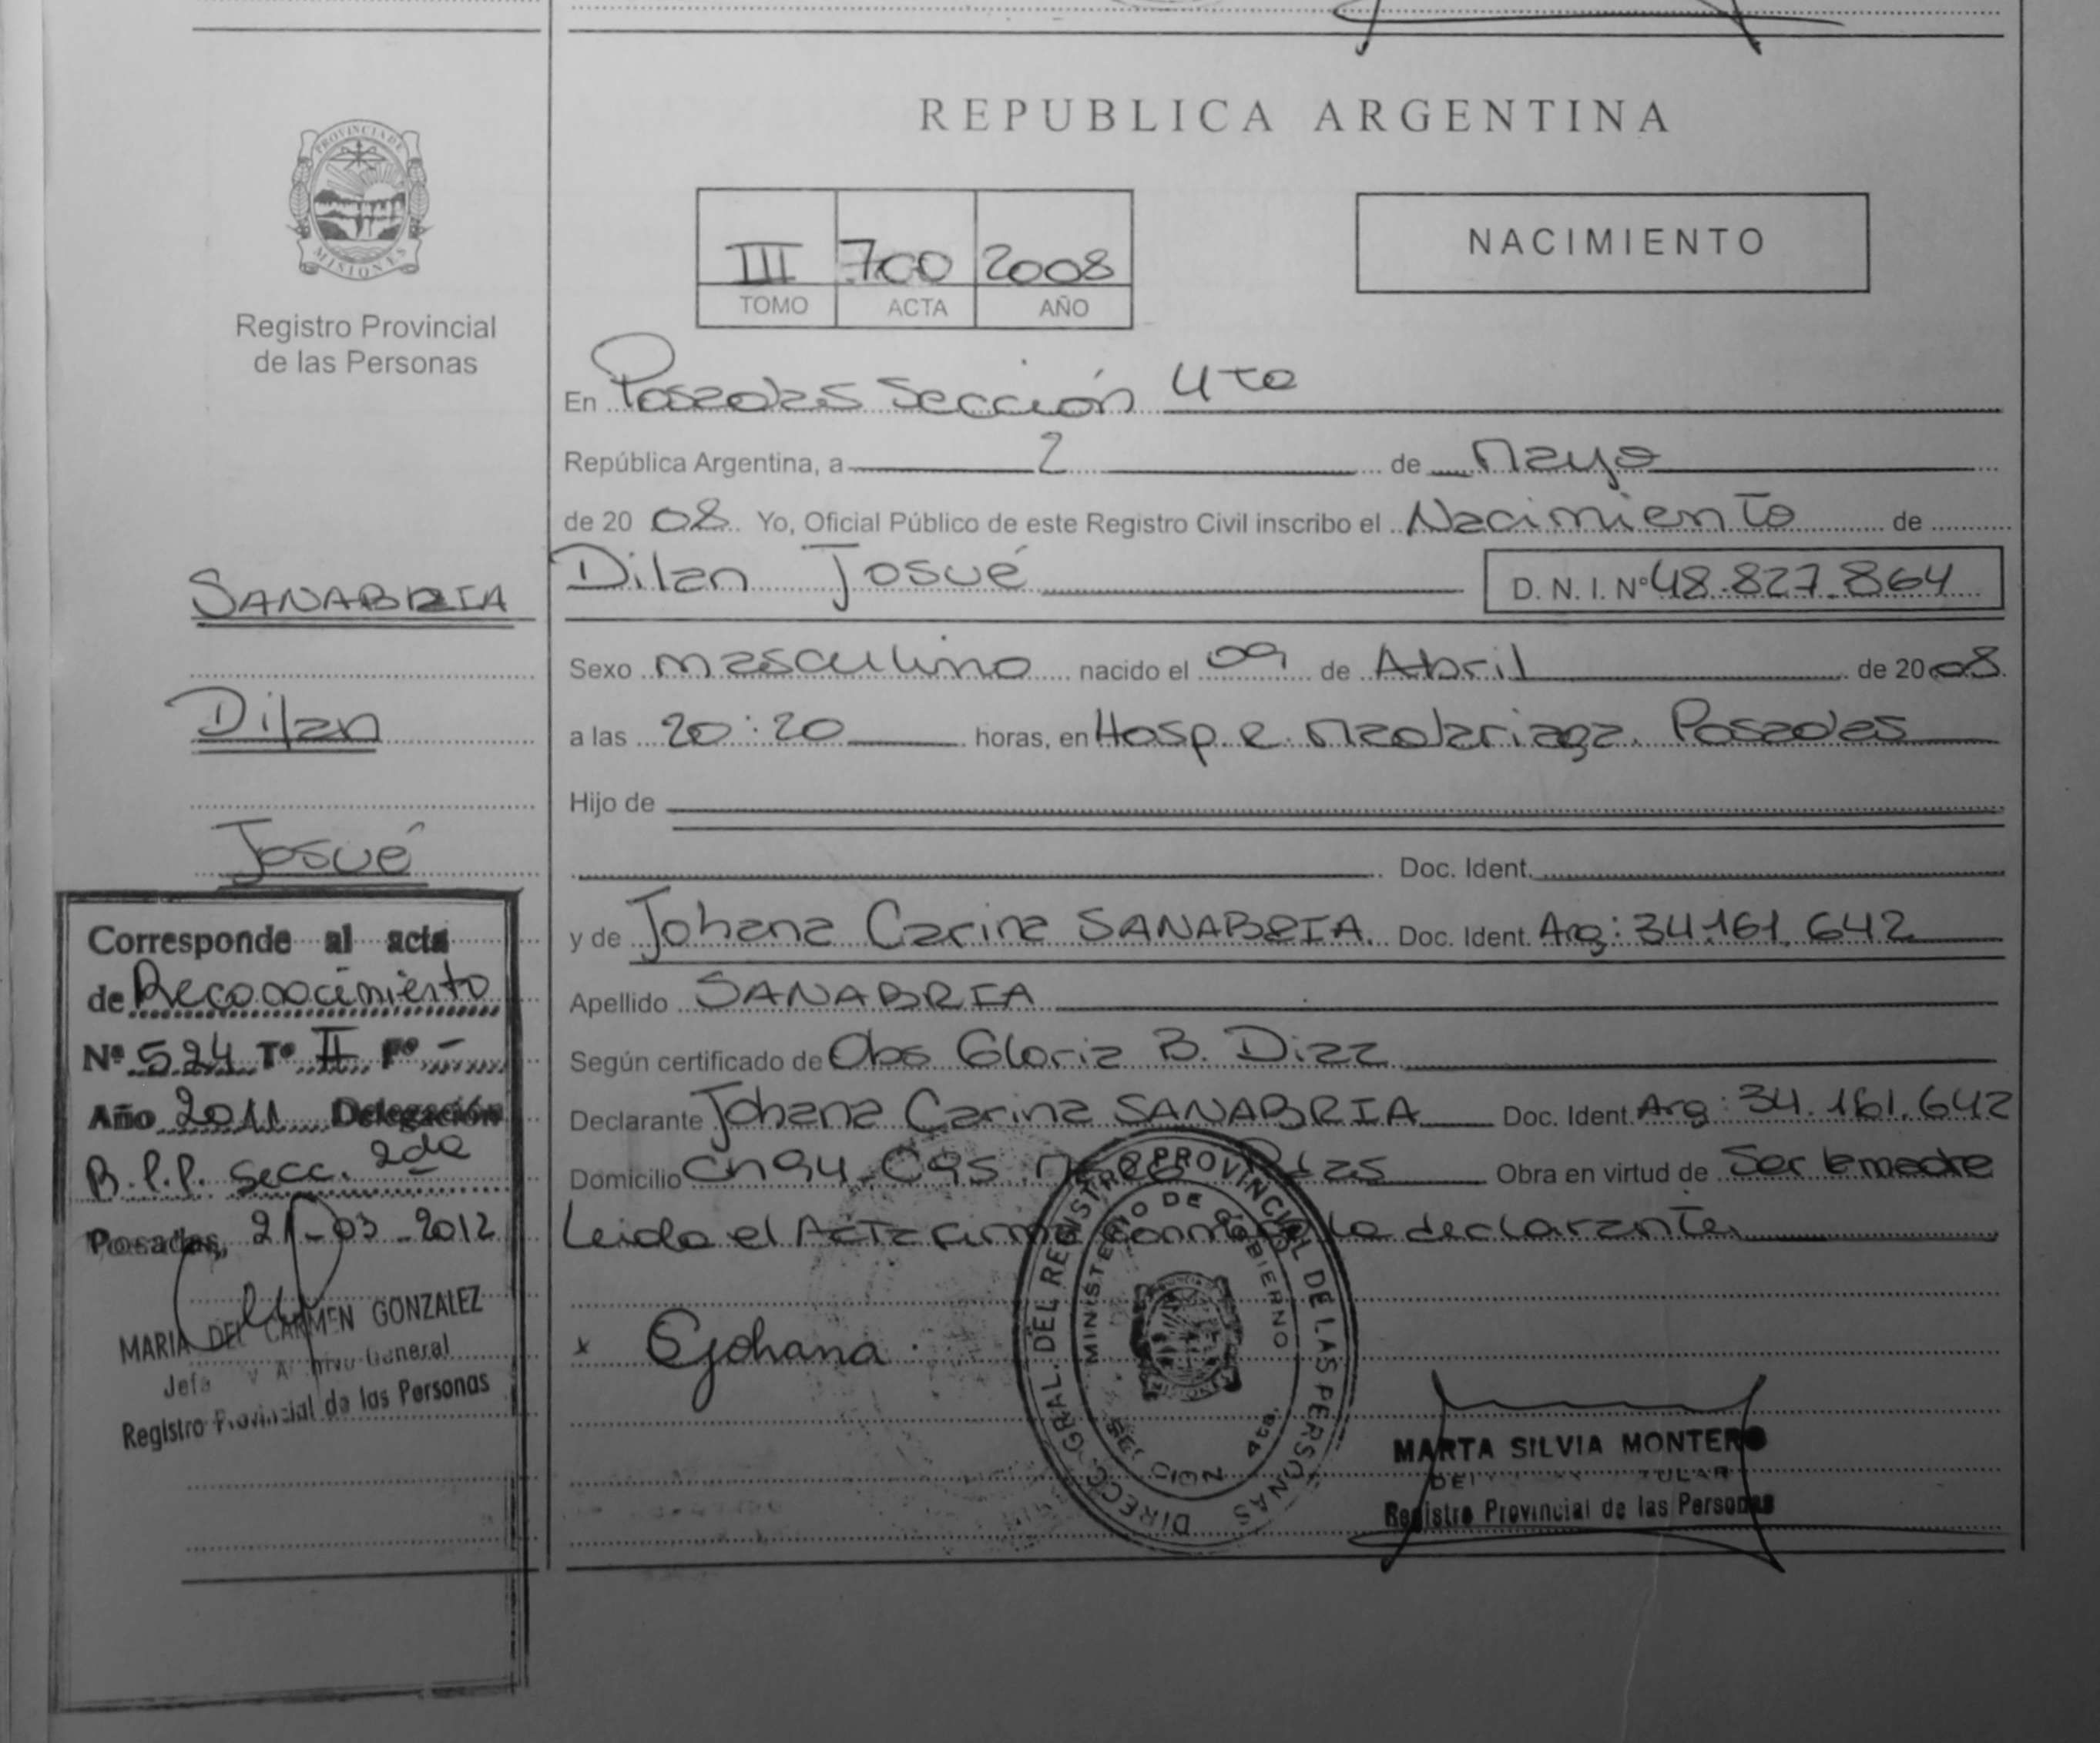 REPUBLICA ARGENTINA
PROVINCIA DE
MISIONES
Registro Provincial
de las Personas
III 700 2008
TOMO ACTA AÑO
NACIMIENTO
En Posadas Sección 4ta
República Argentina, a 2 de Mayo
de 20 08 Yo, Oficial Público de este Registro Civil inscribo el Nacimiento de
Dilan Josué D. N. I. Nº 48.827.864
Sexo masculino nacido el 09 de Abril de 20 08
a las 20:20 horas, en Hosp. R. Madariaga. Posadas
Hijo de
Doc. Ident.
y de Johana Carina SANABRIA. Doc. Ident. Arg: 34.161.642
Apellido SANABRIA
Según certificado de Obs Gloria B. Diaz
Declarante Johana Carina SANABRIA Doc. Ident. Arg: 34.161.642
Domicilio Ch 94 C 95 Obra en virtud de Ser la madre
Leida el Acta firma conmigo la declarante
x Sjohana.
DIRECC. GRAL. DEL REGISTRO PROVINCIAL DE LAS PERSONAS
MINISTERIO DE GOBIERNO
4ta.
MARTA SILVIA MONTERO
Registro Provincial de las Personas
SANABRIA
Dilan
Josué
Corresponde al acta
de Reconocimiento
Nº 524 Tº II Fº -
Año 2011 Delegación
R.P.P. Secc. 2da
Posadas, 21-03-2012
MARIA DEL CARMEN GONZALEZ
Jefa y Archivo General
Registro Provincial de las Personas